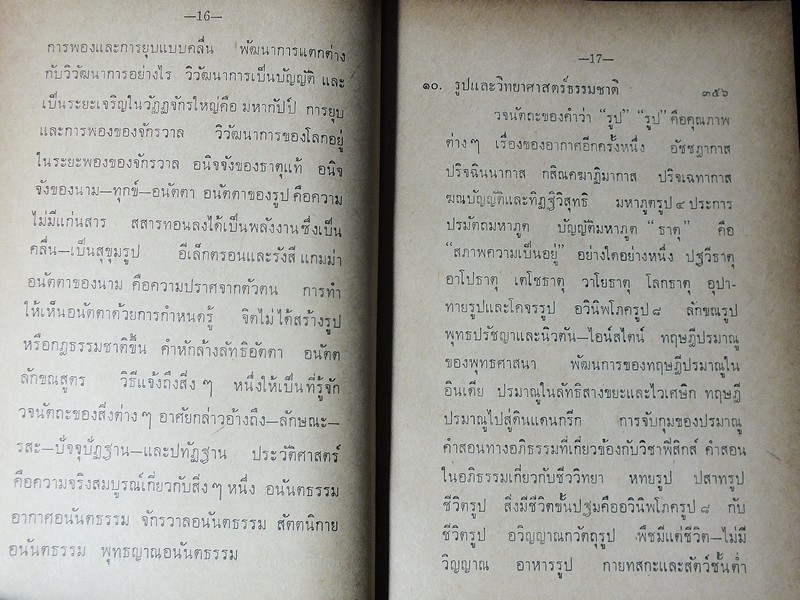 —16—
การพองและการยุบแบบคลื่น พัฒนาการแตกต่าง
กับวิวัฒนาการอย่างไร วิวัฒนาการเป็นบัญญัติ และ
เป็นระยะเจริญในวัฏฏจักรใหญ่คือ มหากัปป์ การยุบ
และการพองของจักรวาล วิวัฒนาการของโลกอยู่
ในระยะพองของจักรวาล อนิจจังของธาตุแท้ อนิจ
จังของนาม—ทุกข์—อนัตตา อนัตตาของรูป คือความ
ไม่มีแก่นสาร สสารทอนลงได้เป็นพลังงานซึ่งเป็น
คลื่น—เป็นสุขุมรูป อีเล็กตรอนและรังสี แกมม่า
อนัตตาของนาม คือความปราศจากตัวตน การทำ
ให้เห็นอนัตตาด้วยการกำหนดรู้ จิตไม่ได้สร้างรูป
หรือกฎธรรมชาติขึ้น คำหักล้างลัทธิอัตตา อนัตต
ลักขณสูตร วิธีแจ้งถึงสิ่ง ๆ หนึ่งให้เป็นที่รู้จัก
วจนัตถะของสิ่งต่าง ๆ อาศัยกล่าวอ้างถึง—ลักษณะ—
รสะ—ปัจจุปัฏฐาน—และปทัฏฐาน ประวัติศาสตร์
คือความจริงสมบูรณ์เกี่ยวกับสิ่ง ๆ หนึ่ง อนันตธรรม
อากาศอนันตธรรม จักรวาลอนันตธรรม สัตตนิกาย
อนันตธรรม พุทธญาณอนันตธรรม
—17—
๑๐. รูปและวิทยาศาสตร์ธรรมชาติ ๓๕๖
วจนัตถะของคำว่า “รูป” “รูป” คือคุณภาพ
ต่าง ๆ เรื่องของอากาศอีกครั้งหนึ่ง อัชชฎากาส
ปริจฉินนากาส กสิณุคฆาฏิมากาส ปริจเฉทากาส
ฆณบัญญัติและทิฏฐิวิสุทธิ มหาภูตรูป ๔ ประการ
ปรมัตถมหาภูต บัญญัติมหาภูต “ธาตุ” คือ
“สภาพความเป็นอยู่” อย่างใดอย่างหนึ่ง ปฐวีธาตุ
อาโปธาตุ เตโชธาตุ วาโยธาตุ โลกธาตุ อุปา-
ทายรูปและโคจรรูป อวินิพโภครูป ๘ ลักขณรูป
พุทธปรัชญาและนิวตัน—ไอน์สไตน์ ทฤษฎีปรมาณู
ของพุทธศาสนา พัฒนการของทฤษฎีปรมาณูใน
อินเดีย ปรมาณูในลัทธิสางขยะและไวเศษิก ทฤษฎี
ปรมาณูไปสู่ดินแดนกรีก การจับกุมของปรมาณู
คำสอนทางอภิธรรมที่เกี่ยวข้องกับวิชาฟิสิกส์ คำสอน
ในอภิธรรมเกี่ยวกับชีววิทยา หทยรูป ปสาทรูป
ชีวิตรูป สิ่งมีชีวิตขั้นปฐมคืออวินิพโภครูป ๘ กับ
ชีวิตรูป อวิญญาณกวัตถุรูป พืชมีแต่ชีวิต—ไม่มี
วิญญาณ อาหารรูป กายทสกะและสัตว์ชั้นต่ำ